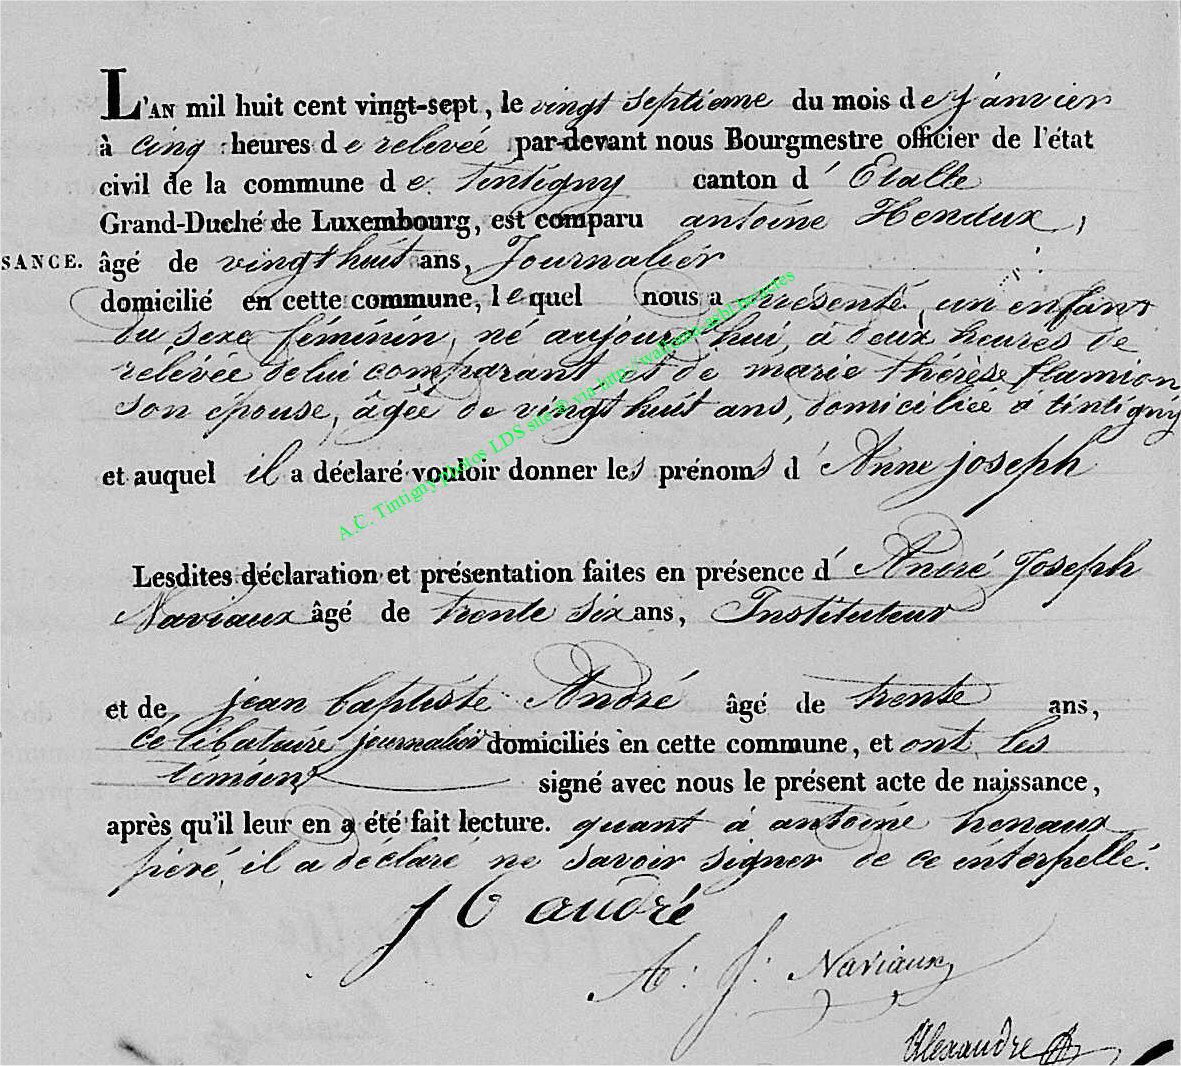 L'AN mil huit cent vingt-sept, le vingt septieme du mois de janvier
à cinq heures de relevée par-devant nous Bourgmestre officier de l'état
civil de la commune de tintigny canton d'Etalle
Grand-Duché de Luxembourg, est comparu antoine Henaux,
SANCE. âgé de vingt huit ans, Journalier
domicilié en cette commune, lequel nous a présenté un enfant
du sexe féminin, né aujourd'hui, à deux heures de
rélévée de lui comparant et de marie thérèse flamion
son épouse, âgée de vingt huit ans, domiciliée à tintigny
et auquel il a déclaré vouloir donner les prénoms d'Anne joseph
Lesdites déclaration et présentation faites en présence d'André Joseph
Naviaux âgé de trente six ans, Instituteur
et de jean baptiste André âgé de trente ans,
celibataire journalier domiciliés en cette commune, et ont les
témoins signé avec nous le présent acte de naissance,
après qu'il leur en a été fait lecture. quant à antoine henaux
père, il a déclaré ne savoir signer de ce interpellé.
J B andré
A: J: Naviaux
Alexandre
A.C. Tintigny photos LDS site © via http://wallonia-asbl.be/actes